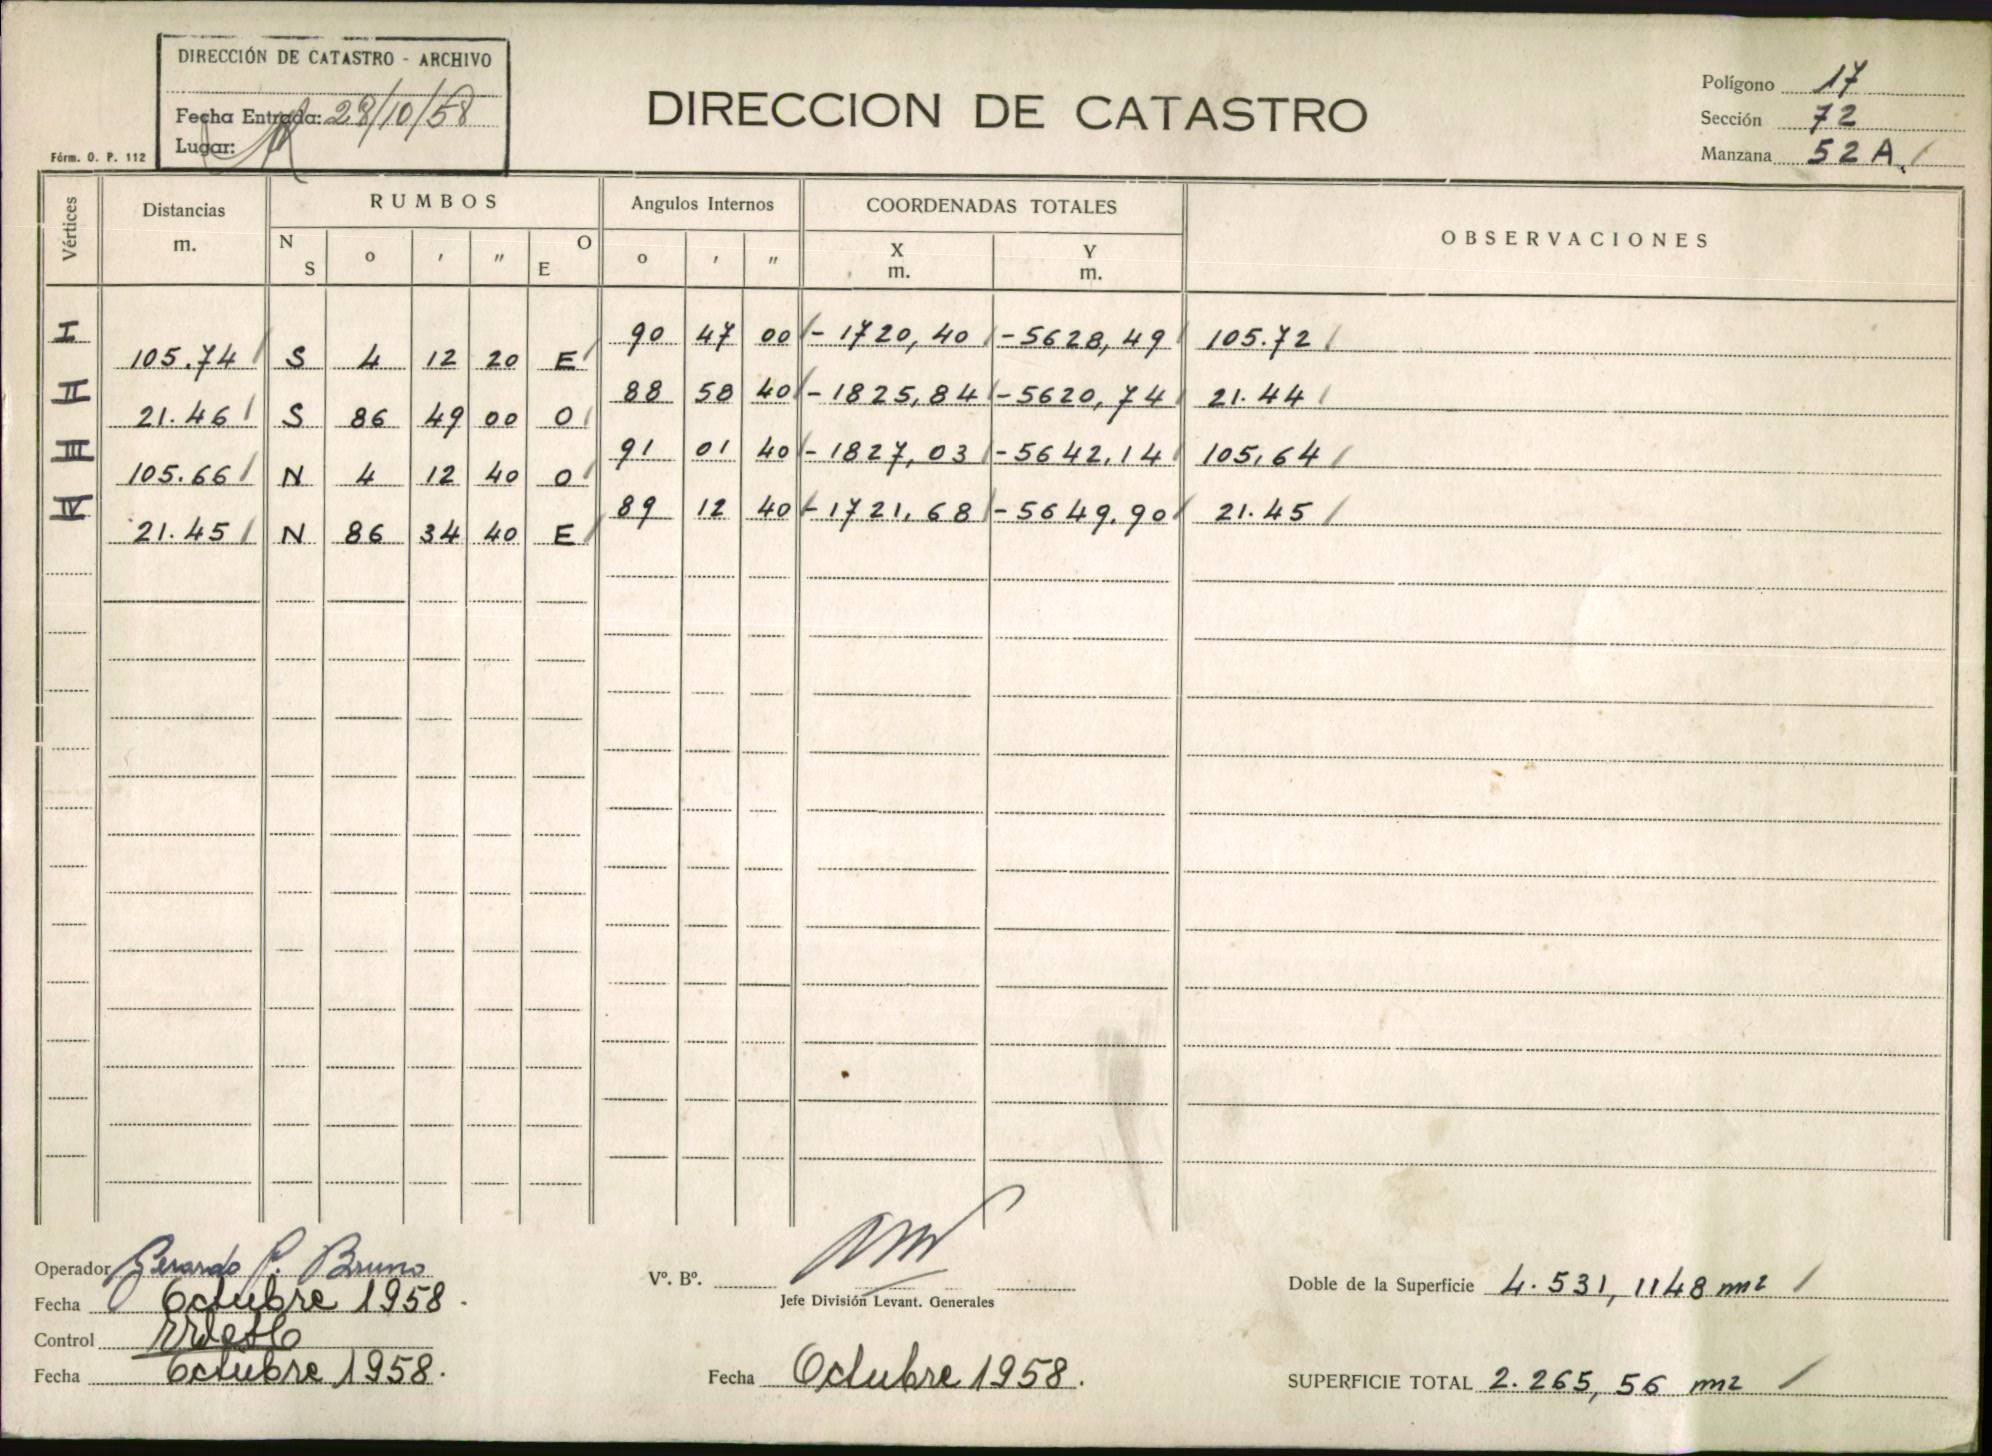 DIRECCIÓN DE CATASTRO - ARCHIVO
Fecha Entrada: 28/10/58
Lugar:
Fórm. O. P. 112
DIRECCION DE CATASTRO
Polígono 17
Sección 72
Manzana 52 A
Vértices Distancias m. RUMBOS Angulos Internos COORDENADAS TOTALES OBSERVACIONES
N S o ' " O E o ' " X m. Y m.
I 90 47 00 - 1720,40 - 5628,49 105.72
105.74 S 4 12 20 E
II 88 58 40 - 1825,84 - 5620,74 21.44
21.46 S 86 49 00 O
III 91 01 40 - 1827,03 - 5642,14 105,64
105.66 N 4 12 40 O
IV 89 12 40 - 1721,68 - 5649,90 21.45
21.45 N 86 34 40 E
Operador Gerardo P. Bruno
Fecha Octubre 1958.
Control
Fecha Octubre 1958.
Vº. Bº.
Jefe División Levant. Generales
Fecha Octubre 1958.
Doble de la Superficie 4.531,1148 m2
SUPERFICIE TOTAL 2.265,56 m2